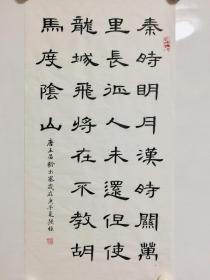 秦時明月漢時關萬
里長征人未還但使
龍城飛將在不教胡
馬度陰山
唐王昌齡出塞歲在